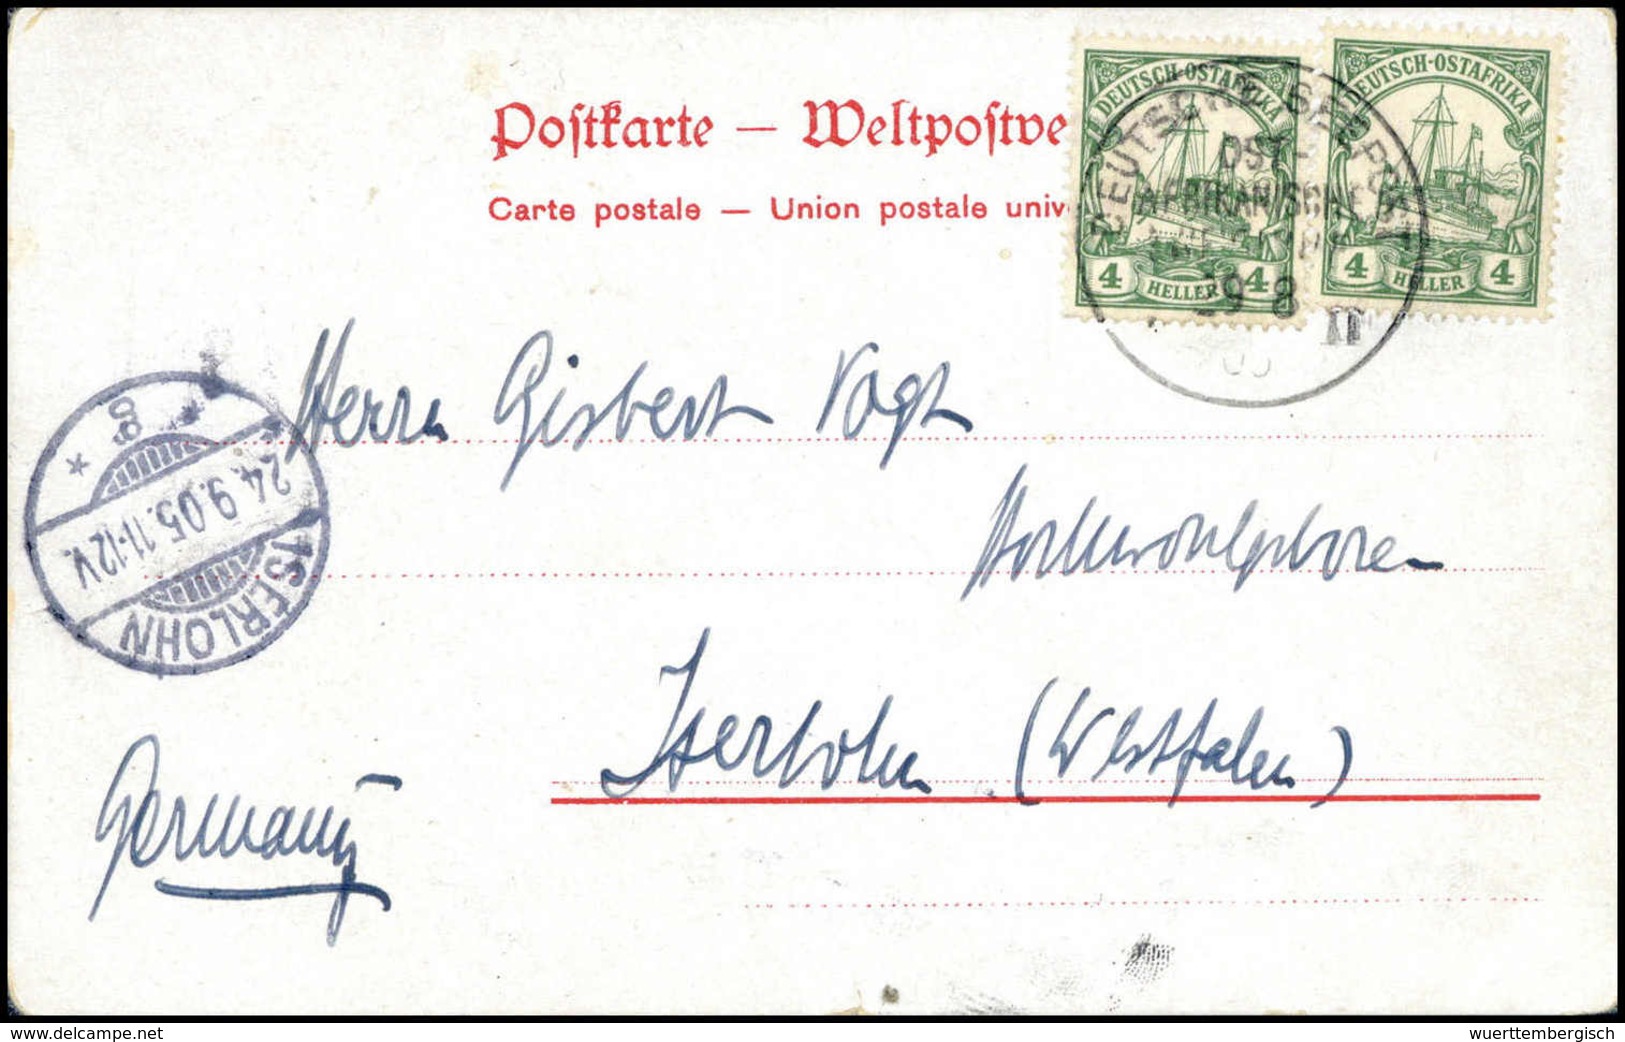 DEUTSCH-OSTAFRIKA
4 HELLER 4
EUTSCH-OSTAFRIKA
4 HELLER 4
DEUTSCHE SEEPOST
OST-
AFRIKANISCHE
29 8
II
Postkarte — Weltpostve
Carte postale — Union postale univ
Herrn Gisbert Vogt
Hochwohlgeboren
Iserlohn (Westfalen)
Germany
ISERLOHN
24.9.05.11-12V.
* *
delcampe.net
wuerttembergisch